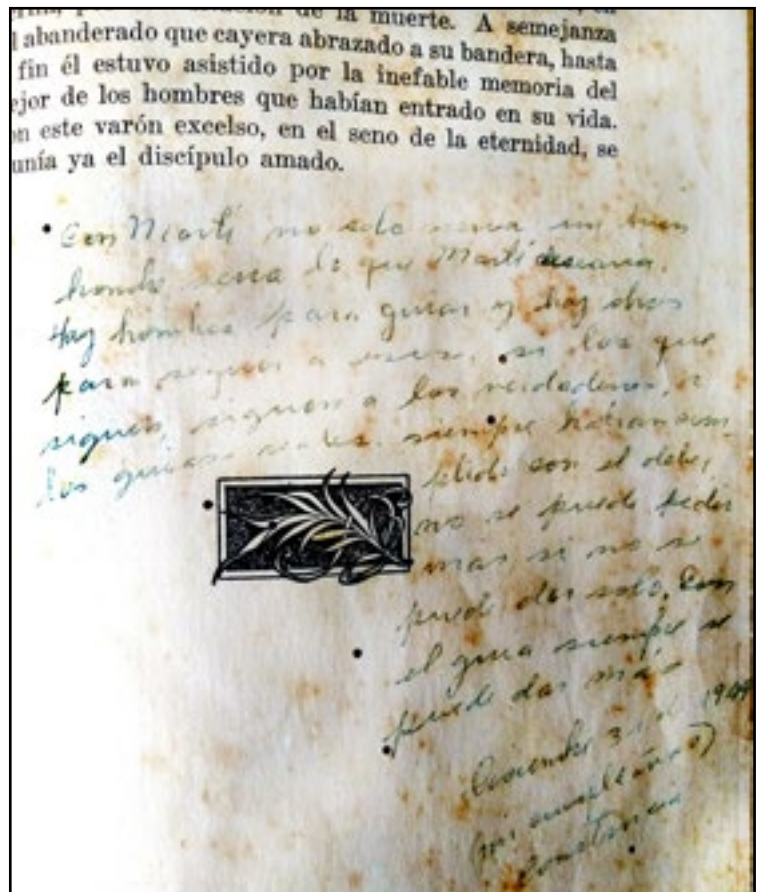 de la muerte. A semejanza
l abanderado que cayera abrazado a su bandera, hasta
fin él estuvo asistido por la inefable memoria del
ejor de los hombres que habían entrado en su vida.
on este varón excelso, en el seno de la eternidad, se
unía ya el discípulo amado.
Con Martí no solo un buen
hombre seria lo que Martí
Hay hombres para guiar y hay otros
para seguir a esos, si los que
siguen, siguen a los verdaderos, a
los guias reales. siempre habran cum
plido con el deber,
no se puede pedir
mas si no se
puede dar solo. Con
el guia siempre se
puede dar más
Diciembre 31 de 1949
(mi cumpleaños)
Constancia